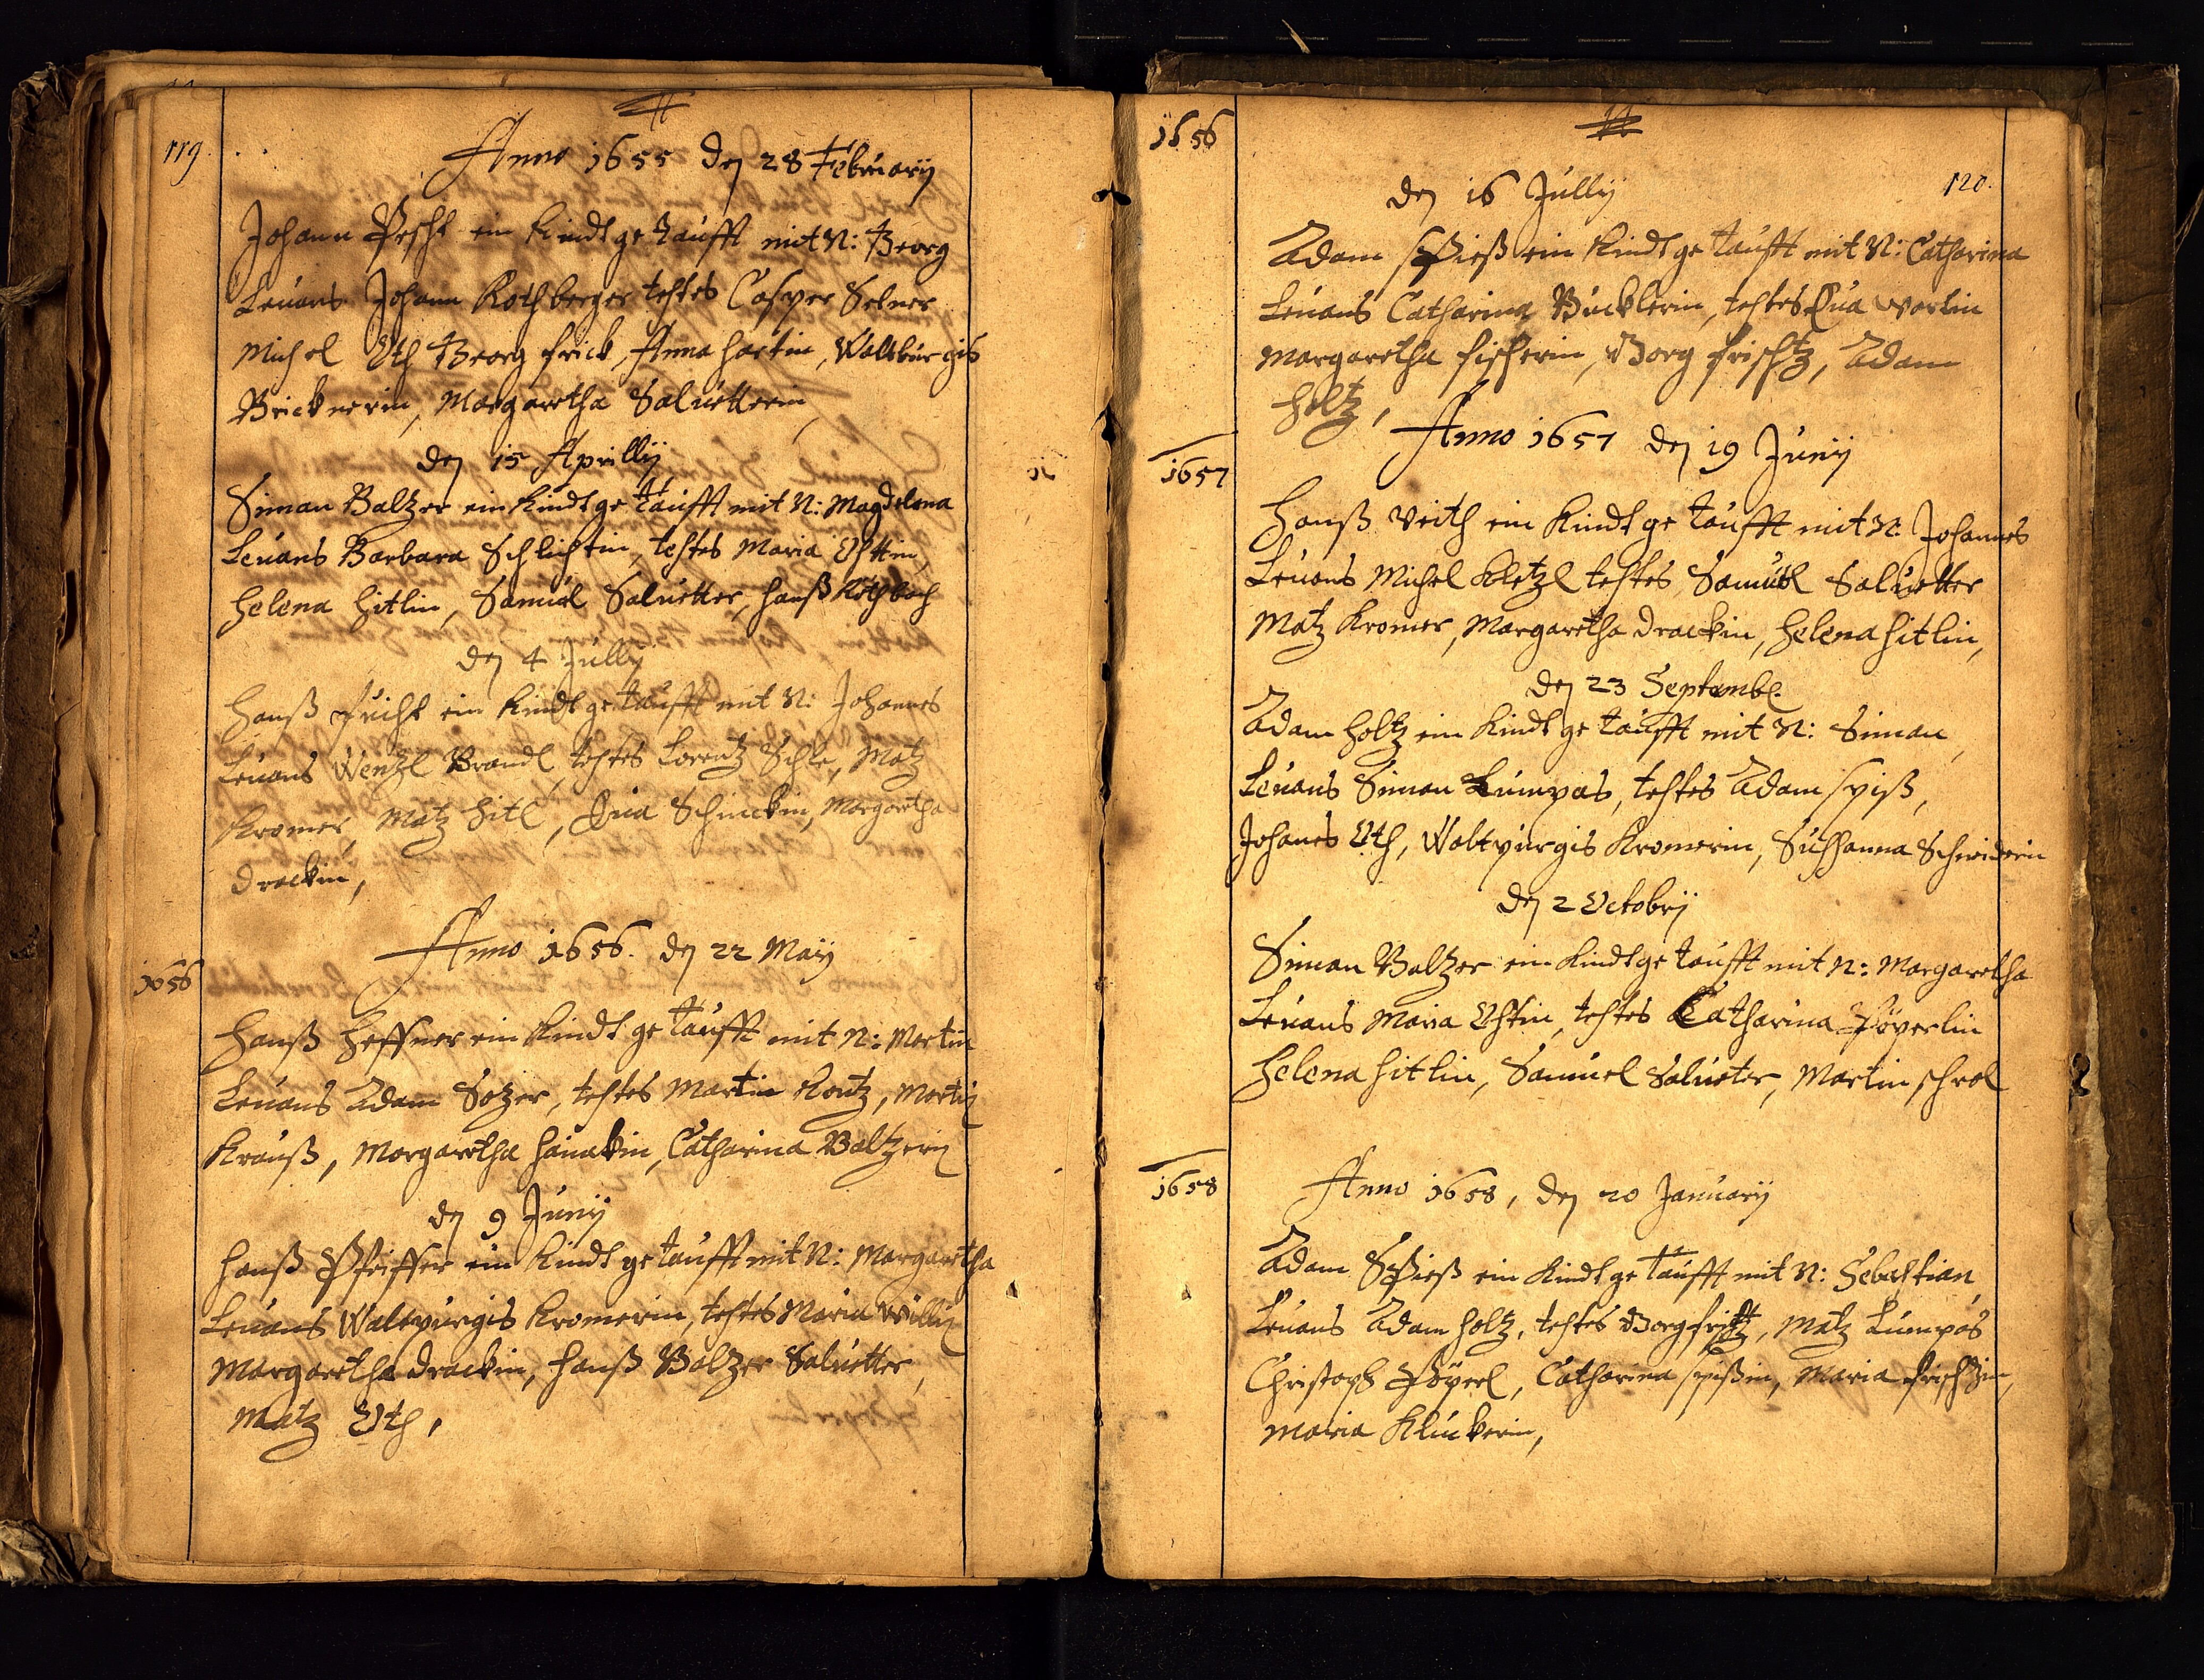 119.
Anno 1655 den 28 February
Johann Pescht ein Kindt getaufft mit N: Georg
Levans Johann Rothberger testes Casper Selner
Michel Uth Georg Frick, Anna Hartin, Waltburgis
Bricknerin, Margaretha Saluetterin,
den 15 Aprilly
Siman Baltzer ein Kindt getaufft mit N: Magdelena
Levans Barbara Schlichtin, testes Maria
Helena Hitlin, Samuel Saluetter, Hanß
den 4 Jully
Hanß ein Kindt getaufft mit N: Johannes
Levans Wenzl Brandl, testes Lorentz Matz
Kromer, Matz Hitl, Eua Schinckin, Margaretha
Drackin,
1656
Anno 1656. den 22 Maÿ
Hanß Heffner ein Kindt getaufft mit N: Martin
Levans Adam testes Martin Martin
Krauß, Margaretha Catharina Baltzerin
den 9 Junÿ
Hanß Pfeiffer ein Kindt getaufft mit N: Margaretha
Levans Waltpurgis Kromerin, testes Maria
Margaretha Drackin, Hanß Baltzer Saluetter,
Matz Uth,
1656
120.
den 16 Jullÿ
Adam Spieß ein Kindt getaufft mit N: Catharina
Levans Catharina Bücklerin, testes Eua
Margaretha Fischerin, Georg Frischtz, Adam
Holtz,
1657
Anno 1657 den 19 Junÿ
Hanß Veith ein Kindt getaufft mit N. Johannes
Levans Michel Kletzl testes Samuel Saluetter
Matz Kromer, Margaretha Drackin, Helena Hitlin,
den 23 Septembe.
Adam Holtz ein Kindt getaufft mit N: Siman,
Levans Siman Lumpas, testes Adam Spiß,
Johanes Uth, Waltpurgis Kromerin, Sussanna Schneiderin
den 2 Octobrÿ
Siman Baltzer ein Kindt getaufft mit N: Margaretha
Levans Maria testes Catharina Pöperlin
Helena Hitlin, Samuel Salueter, Martin Schrol
1658
Anno 1658, den 20 Januarÿ
Adam Spieß ein Kindt getaufft mit N: Sebastian,
Levans Adam Holtz, testes Georg Matz Lumpas
Christoph Pöperl, Catharina Spißin, Maria Frischtzin,
Maria Kluckerin,